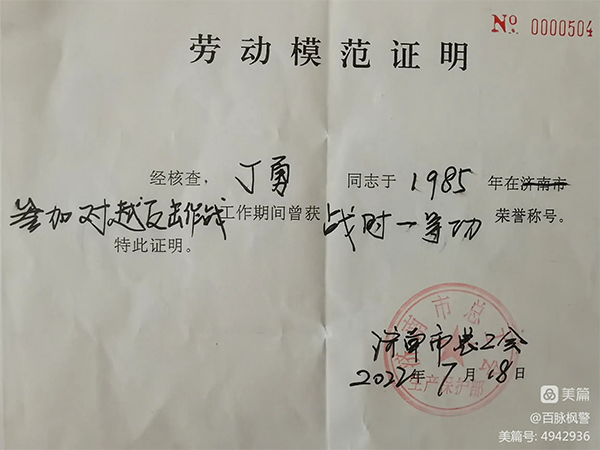 No. 0000504
劳动模范证明
经核查，丁勇同志于1985年在济南市
参加对越反击作战工作期间曾获战时一等功荣誉称号。
特此证明。
济南市总工会
生产保护部
济南市总工会
2022年7月18日
美篇
@百脉枫警
美篇号: 4942936